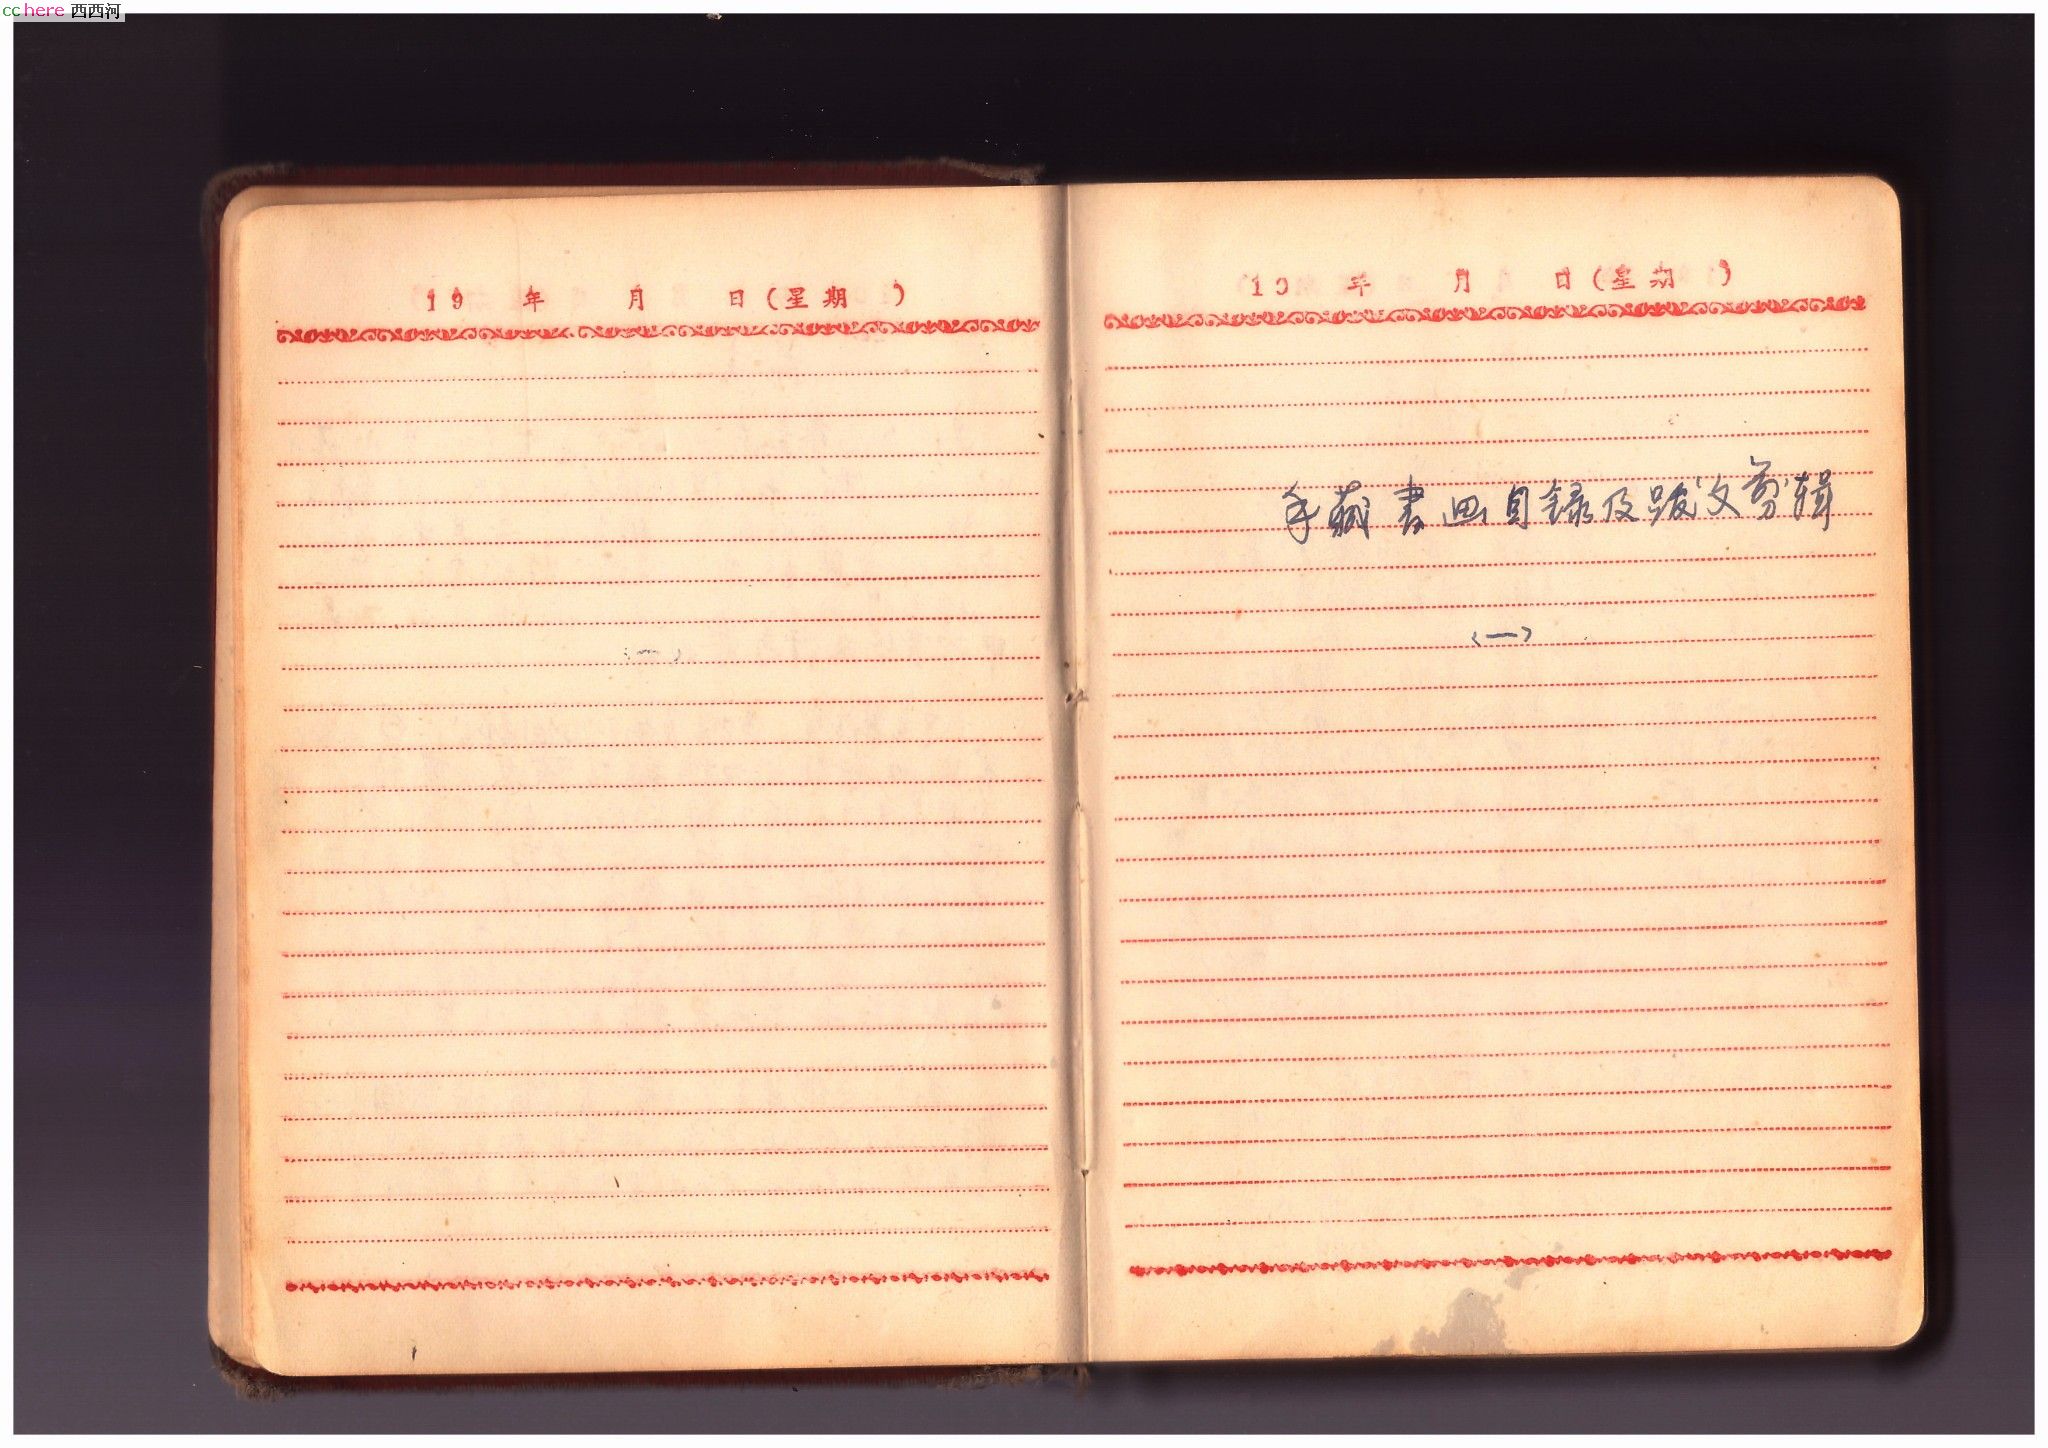 cchere 西西河
19 年 月 日(星期 )
19 年 月 日(星期 )
手藏書画目録及跋文剪辑
<一>